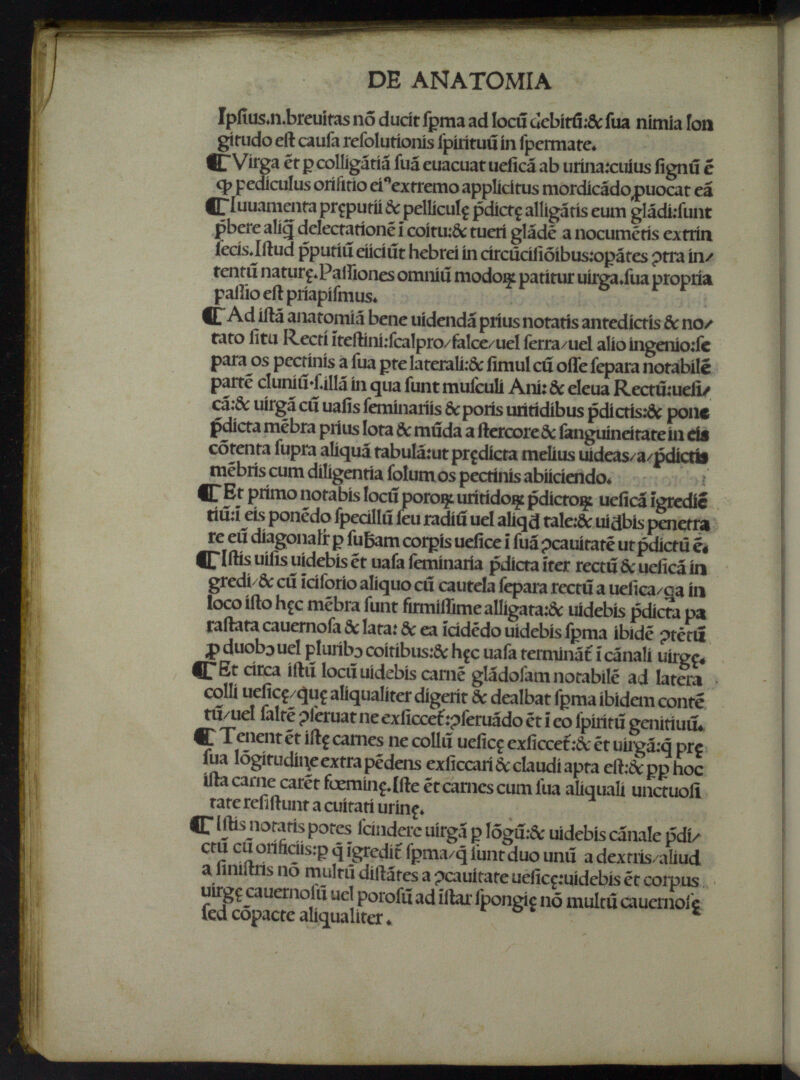 DE ANATOMIA
Ipſius.n.breuitas nõ ducit ſpma ad locũ debitũ:& ſua nimia lon
gitudo eſt cauſa reſolutionis ſpirituũ in ſpermate.
¶ Virga ẽt p colligãtiã ſuã euacuat ueſicã ab urina:cuius ſignũ ẽ
ꝙ pediculus orifitio eiꝰ extremo applicitus mordicãdo ꝓuocat eã
¶ Iuuamenta pręputii & pelliculę p̃dictę alligãtis eum glãdi:ſunt
p̃bere aliq̃ delectationẽ ĩ coitu:& tueri glãdẽ a nocumẽtis extrin
ſecis.Iſtud p̃putiũ eiiciũt hebrei in circũciſiõibus:opãtes ↄtra in/
tentũ naturę.Paſſiones omniũ modoꝝ patitur uirga.ſua propria
paſſio eſt priapiſmus.
¶ Ad iſtã anatomiã bene uidendã prius notatis antedictis & no/
tato ſitu Recti ĩteſtini:ſcalpro/falce/uel ſerra/uel alio ingenio:ſe
para os pectinis a ſua pte laterali:& ſimul cũ oſſe ſepara notabilẽ
partẽ cluniũ.ſ.illã in qua ſunt muſculi Ani: & eleua Rectũ:ueſi/
cã:& uirgã cũ uaſis ſeminariis & poris uritidibus p̃dictis:& pone
p̃dicta mẽbra prius lota & mũda a ſtercore & ſanguineitate in eis
cõtenta ſupra aliquã tabulã:ut prędicta melius uideas/a/p̃dictis
mẽbris cum diligentia ſolum os pectinis abiiciendo.
¶ Et primo notabis locũ poroꝝ uritidoꝝ p̃dictoꝝ ueſicã ĩgrediẽ
tiũ:ĩ eis ponẽdo ſpecillũ ſeu radiũ uel aliqd tale:& uidbis penetra
re eũ diagonalr p ſubam corpis ueſice ĩ ſuã ↄcauitatẽ ut p̃dictũ ẽ.
¶ Iſtis uiſis uidebis ẽt uaſa ſeminaria p̃dicta ĩter rectũ & ueſicã in
gredi/& cũ ĩciſorio aliquo cũ cautela ſepara rectũ a ueſica/qa in
loco iſto hęc mẽbra ſunt firmiſſime alligata:& uidebis p̃dicta pa
raſtata cauernoſa & lata: & ea ĩcidẽdo uidebis ſpma ibidẽ ↄtẽtũ
ꝓ duobↄ uel pluribↄ coitibus:& hęc uaſa terminãt̃ ĩ cãnali uirgę.
¶ Et circa iſtũ locũ uidebis carnẽ glãdoſam notabilẽ ad latera
colli ueſicę/quę aliqualiter digerit & dealbat ſpma ibidem contẽ
tũ/uel ſaltẽ ↄſeruat ne exſiccet̃:ↄſeruãdo ẽt ĩ eo ſpiritũ genitiuũ.
¶ Tenent ẽt iſtę carnes ne collũ ueſicę exſiccet̃:& ẽt uirgã:q̃ prę
ſua lõgitudine extra pẽdens exſiccari & claudi apta eſt:& pp hoc
iſta carne carẽt fœminę.Iſte ẽt carnes cum ſua aliquali unctuoſi
tate reſiſtunt acuitati urinę.
¶ Iſtis notatis potes ſcindere uirgã p lõgũ:& uidebis cãnale p̃di/
ctũ cũ orificiis:p q̃ ĩgredit̃ ſpma/q̃ ſunt duo unũ a dextris/aliud
a ſiniſtris nõ multũ diſtãtes a ↄcauitate ueſicę:uidebis ẽt corpus
uirgę cauernoſũ uel poroſũ ad iſtar ſpongię nõ multũ cauernoſę
ſed cõpacte aliqualiter.